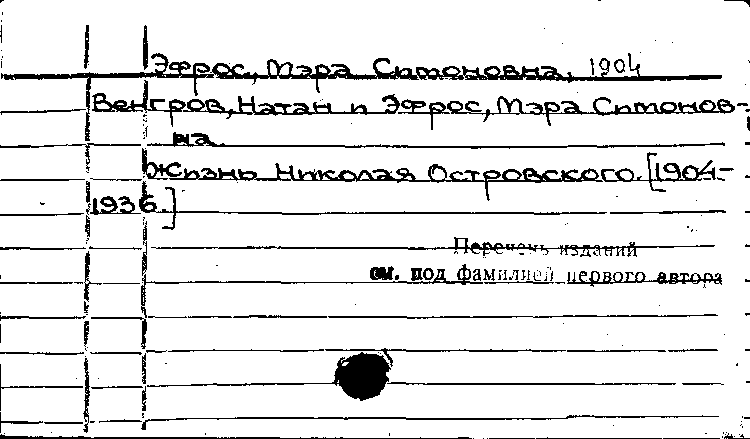 Эфрос, Мэра Симоновна, 1904
Венгров, Натан и Эфрос, Мэра Симонов-
на.
Жизнь Николая Островского. [1904-
1936.]
Перечень изданий
см. под фамилией первого автора